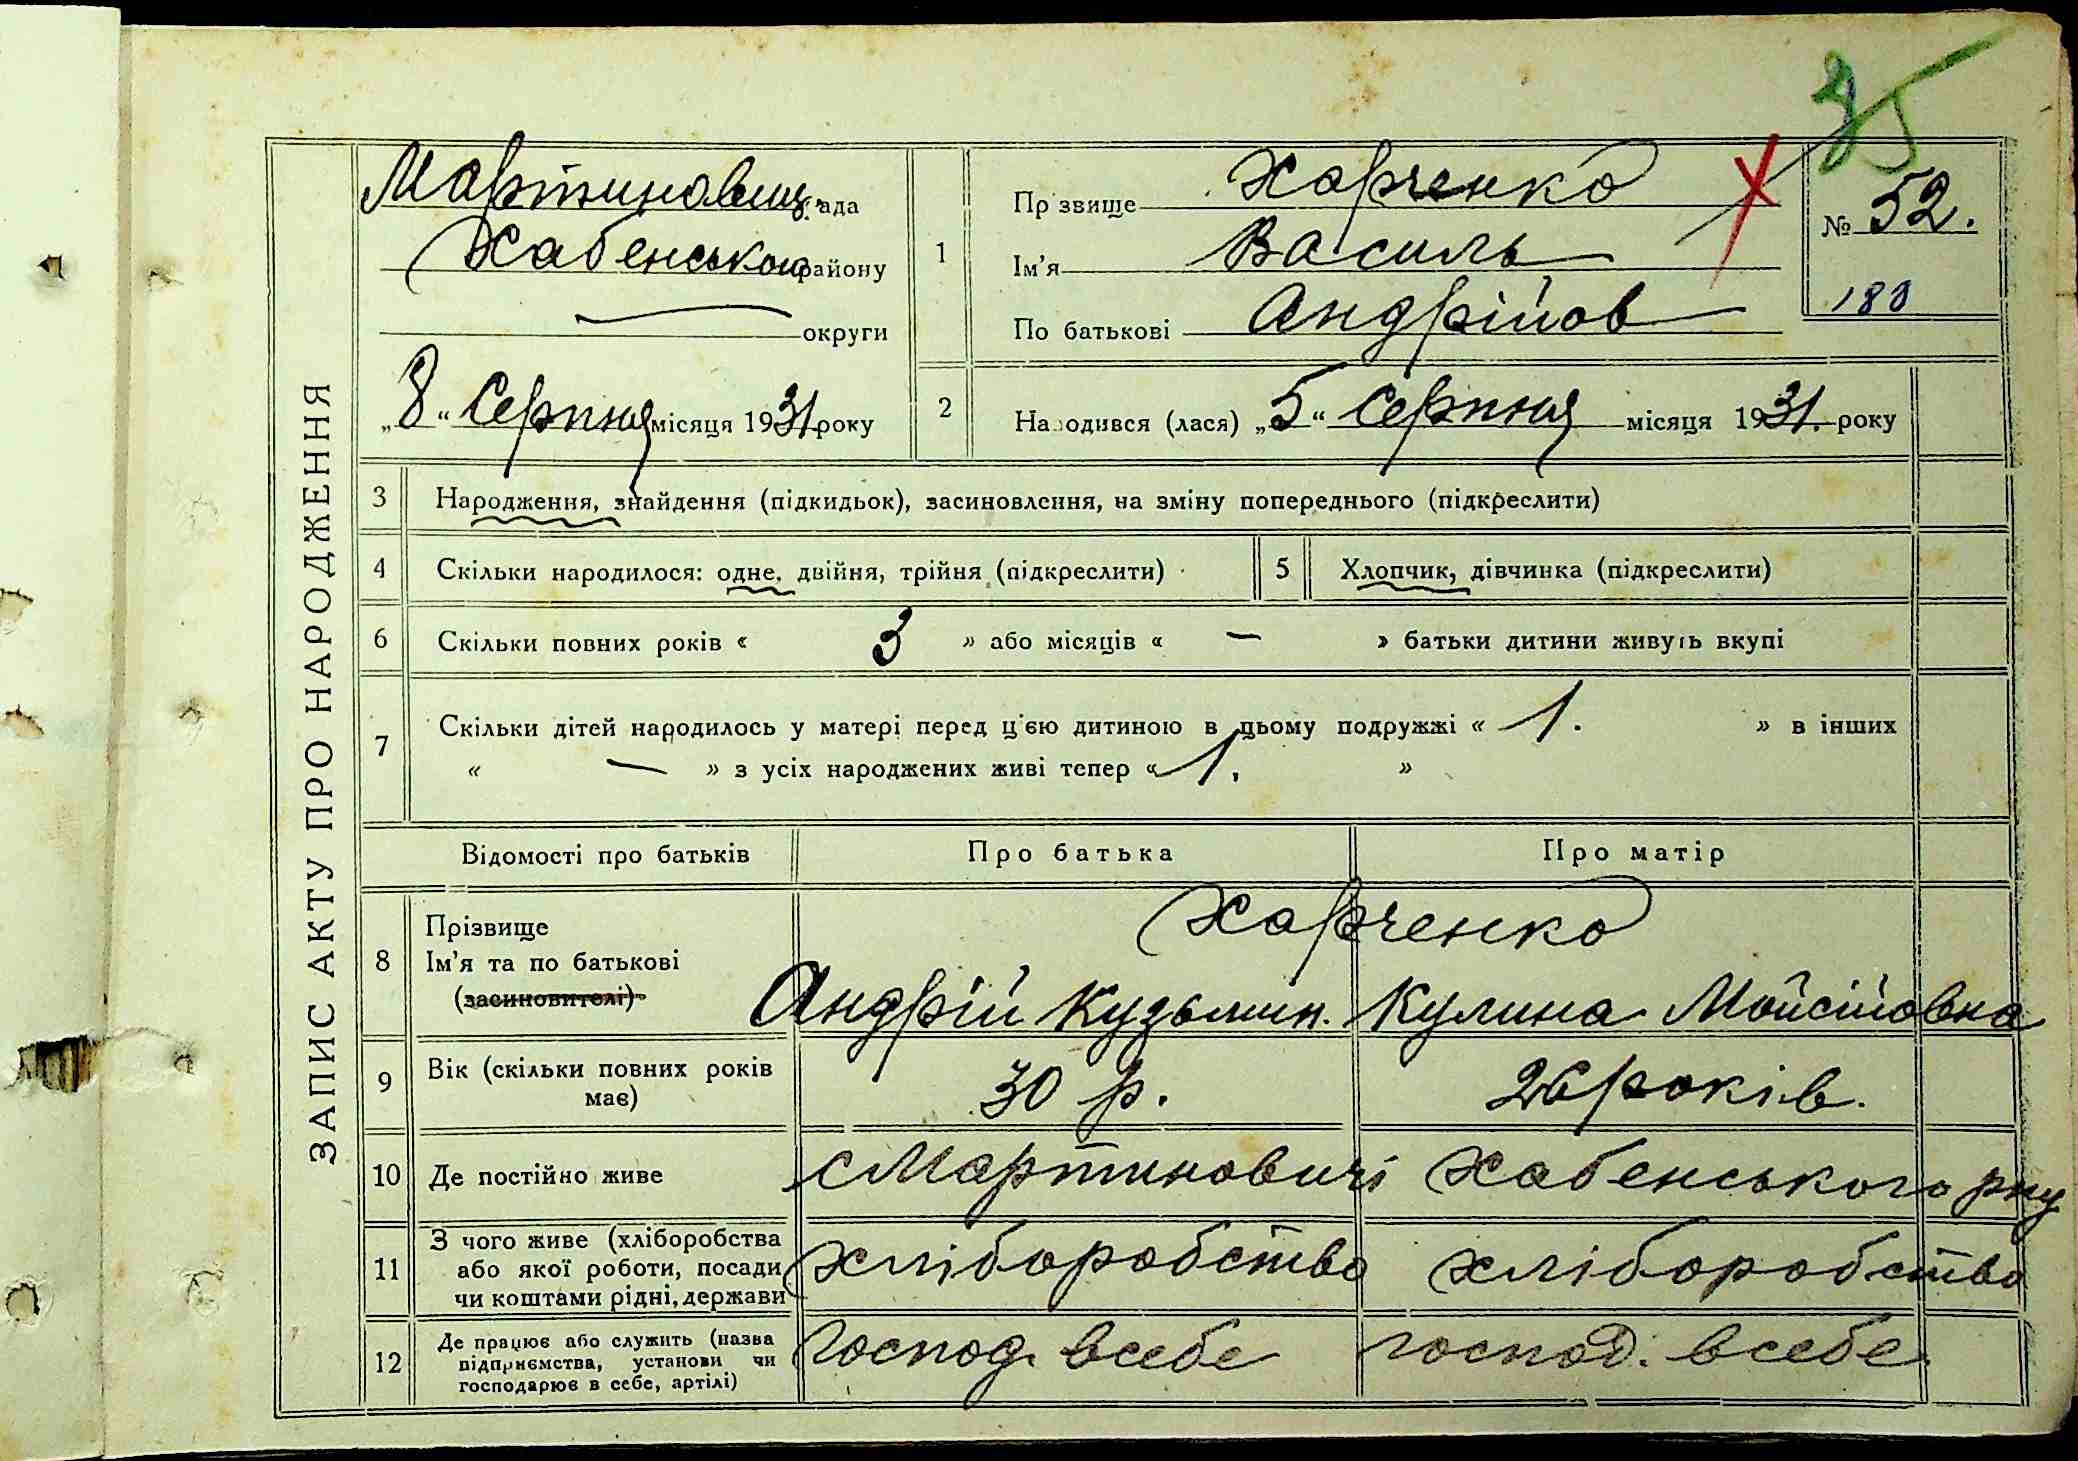 ЗАПИС АКТУ ПРО НАРОДЖЕННЯ
35
Мартиновиц. рада
Хабенського району
округи
„8“ Серпня місяця 1931 року
1
Прізвище Харченко
Ім'я Василь
По батькові Андрійов
№ 52.
180
2
Народився (лася) „5“ Серпня місяця 1931. року
3 Народження, знайдення (підкидьок), засиновлення, на зміну попереднього (підкреслити)
4 Скільки народилося: одне, двійня, трійня (підкреслити)
5 Хлопчик, дівчинка (підкреслити)
6 Скільки повних років « 3 » або місяців « — » батьки дитини живуть вкупі
7 Скільки дітей народилось у матері перед ц'єю дитиною в цьому подружжі « 1. » в інших
« — » з усіх народжених живі тепер « 1. »
Відомості про батьків Про батька Про матір
8 Прізвище
Ім'я та по батькові
(засиновителі)
Харченко
Андрій Кузьмин. Кулина Мойсійовна
9 Вік (скільки повних років має) 30 р. 26 років.
10 Де постійно живе с Мартиновичі Хабенського рну
11 З чого живе (хліборобства
або якої роботи, посади
чи коштами рідні, держави
хліборобство хліборобство
12 Де працює або служить (назва
підприємства, установи чи
господарює в себе, артілі)
господ. всебе господ. всебе